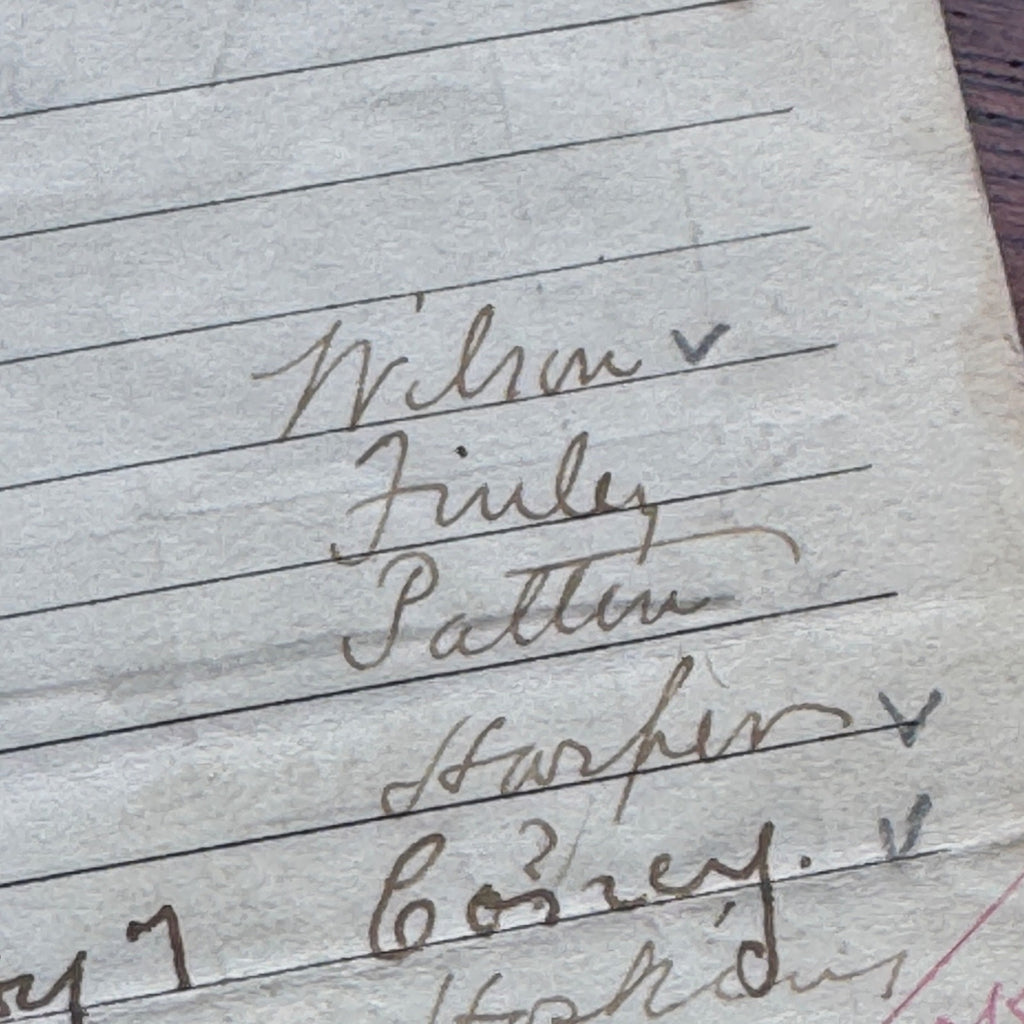 Wilson ✓
Finley
Patten
Harper ✓
Corey. ✓
Hopkins